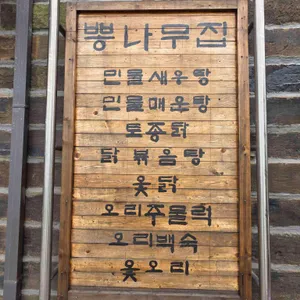 뽕나무집
민물새우탕
민물매운탕
토종닭
닭볶음탕
옻닭
오리주물럭
오리백숙
옻오리